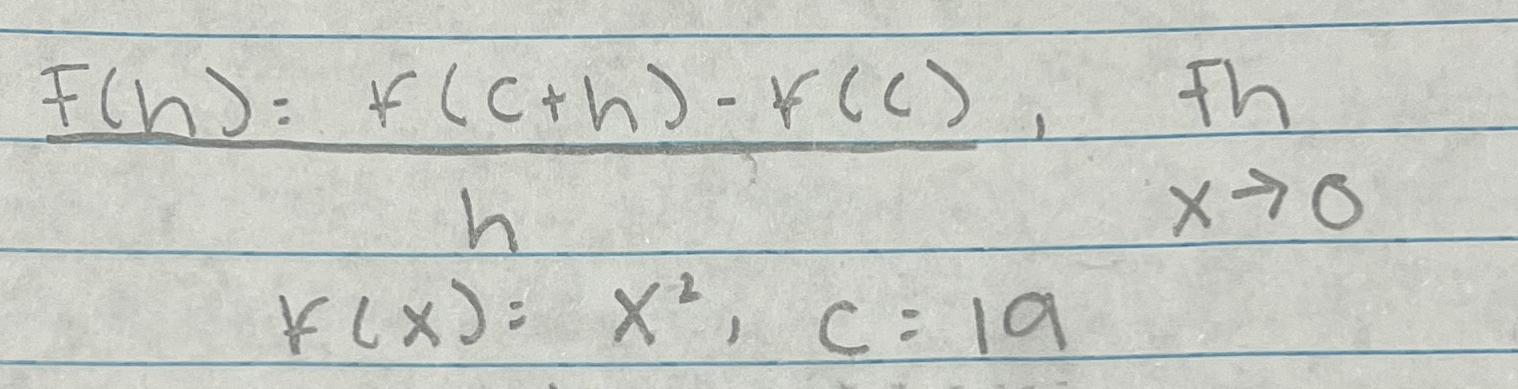 F(h) = f(c+h) - f(c) , Fh
h x→0
f(x) = x², c = 19